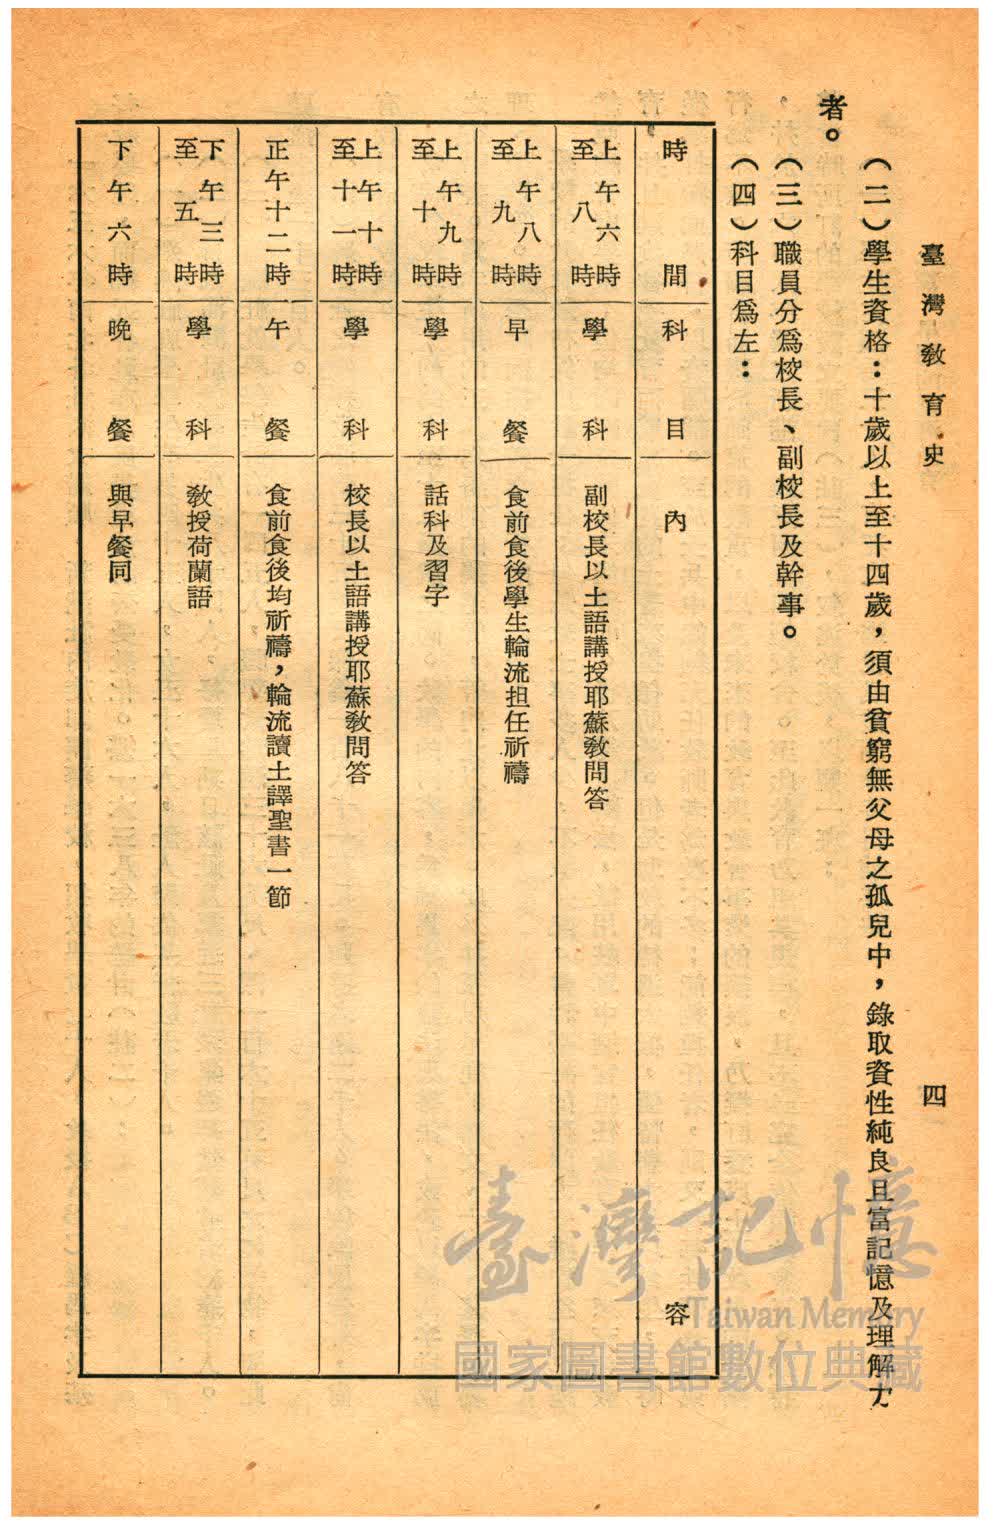 臺灣教育史
四
（二）學生資格：十歲以上至十四歲，須由貧窮無父母之孤兒中，錄取資性純良且富記憶及理解力
者。
（三）職員分爲校長、副校長及幹事。
（四）科目爲左：
時間 科目 內容
上午六時至八時 學科 副校長以土語講授耶蘇敎問答
上午八時至九時 早餐 食前食後學生輪流担任祈禱
上午九時至十時 學科 話科及習字
上午十時至十一時 學科 校長以土語講授耶蘇敎問答
正午十二時 午餐 食前食後均祈禱，輪流讀土譯聖書一節
下午三時至五時 學科 敎授荷蘭語
下午六時 晚餐 與早餐同
臺灣記憶
Taiwan Memory
國家圖書館數位典藏